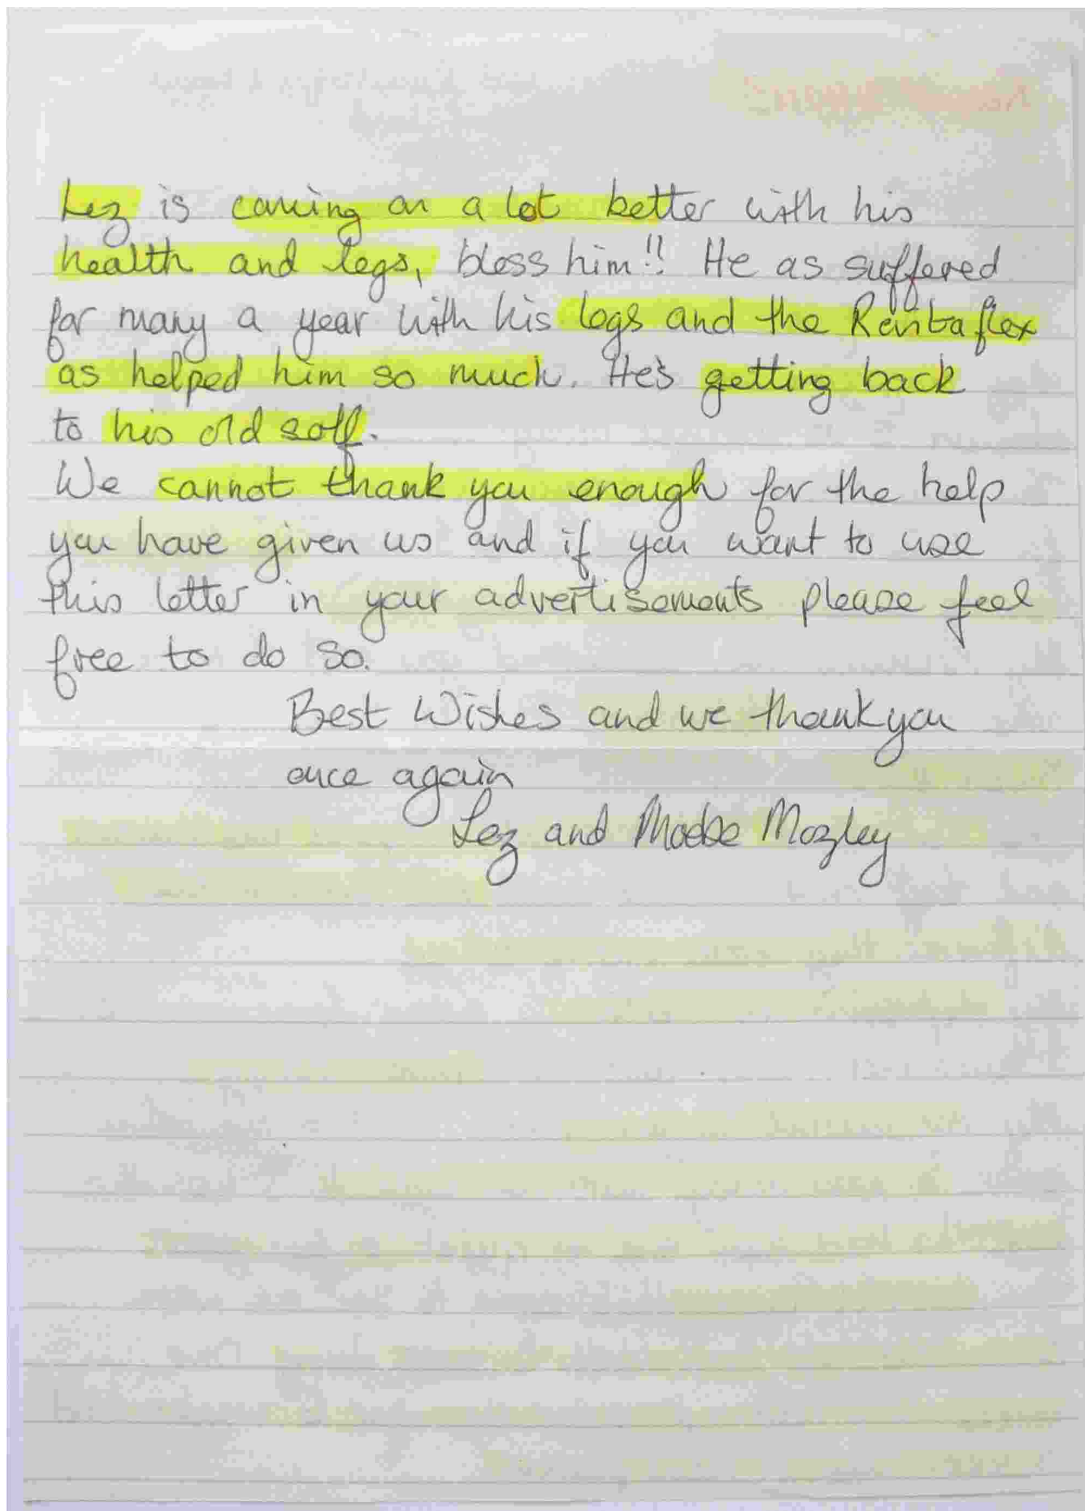 Lez is coming on a lot better with his
health and legs, bless him!! He as suffered
for many a year with his legs and the Revitaflex
as helped him so much. He's getting back
to his old self.
We cannot thank you enough for the help
you have given us and if you want to use
this letter in your advertisements please feel
free to do so.
Best Wishes and we thank you
once again
Lez and Phoebe Mozley